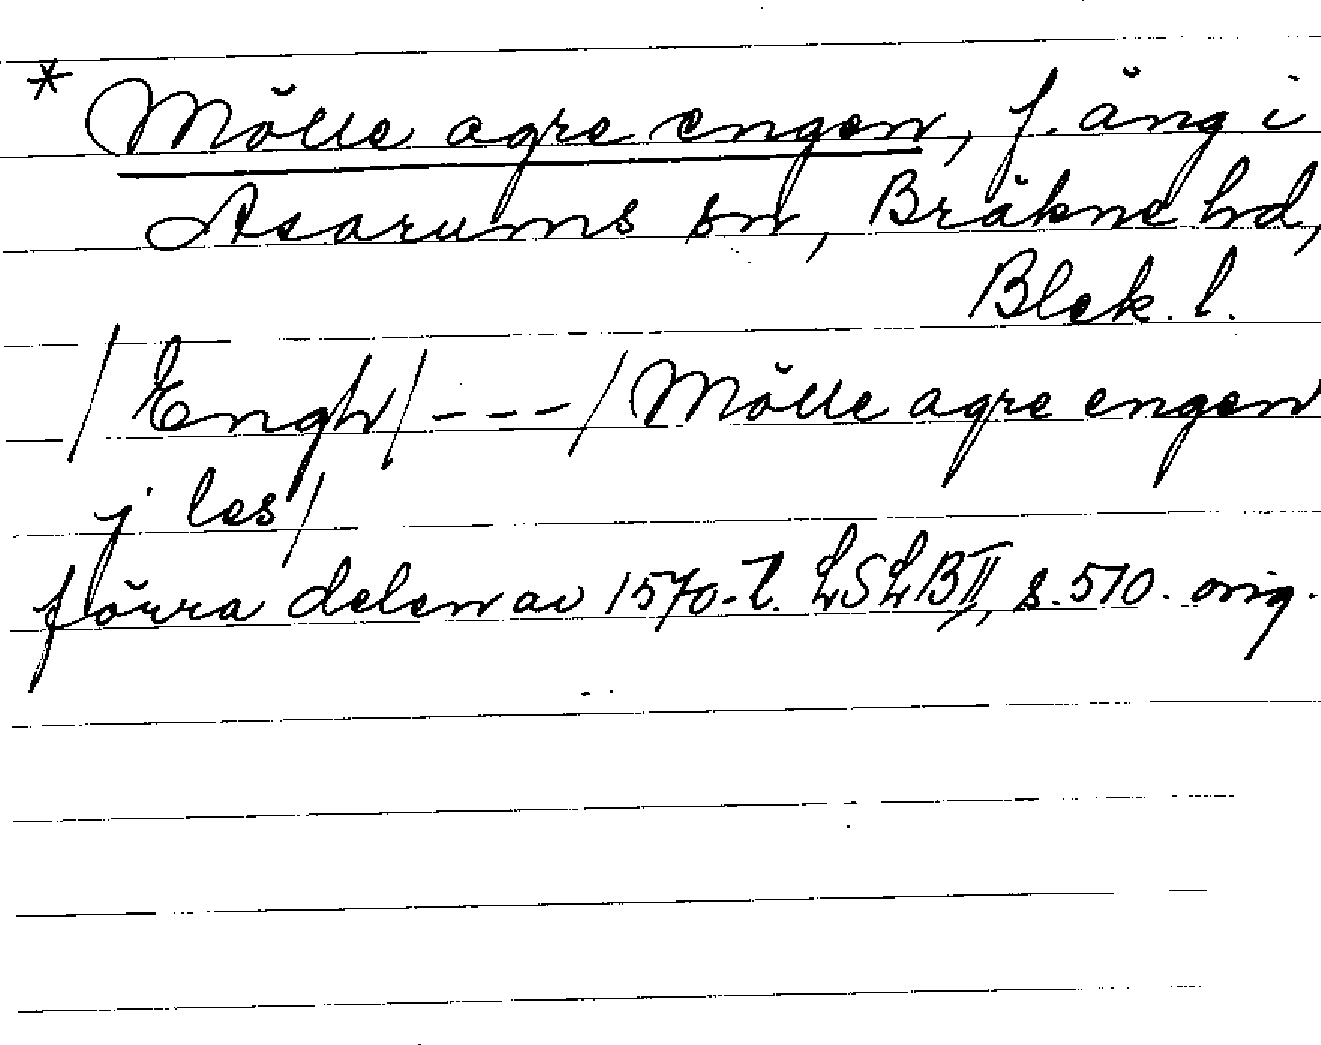 * Mölle agre engen, f. äng i
Asarums sn, Bräkne hd,
Blek. l.
/Engh/---/Mölle agre engen
j les/
förra delen av 1570-t. LSLB II, s. 510. orig.